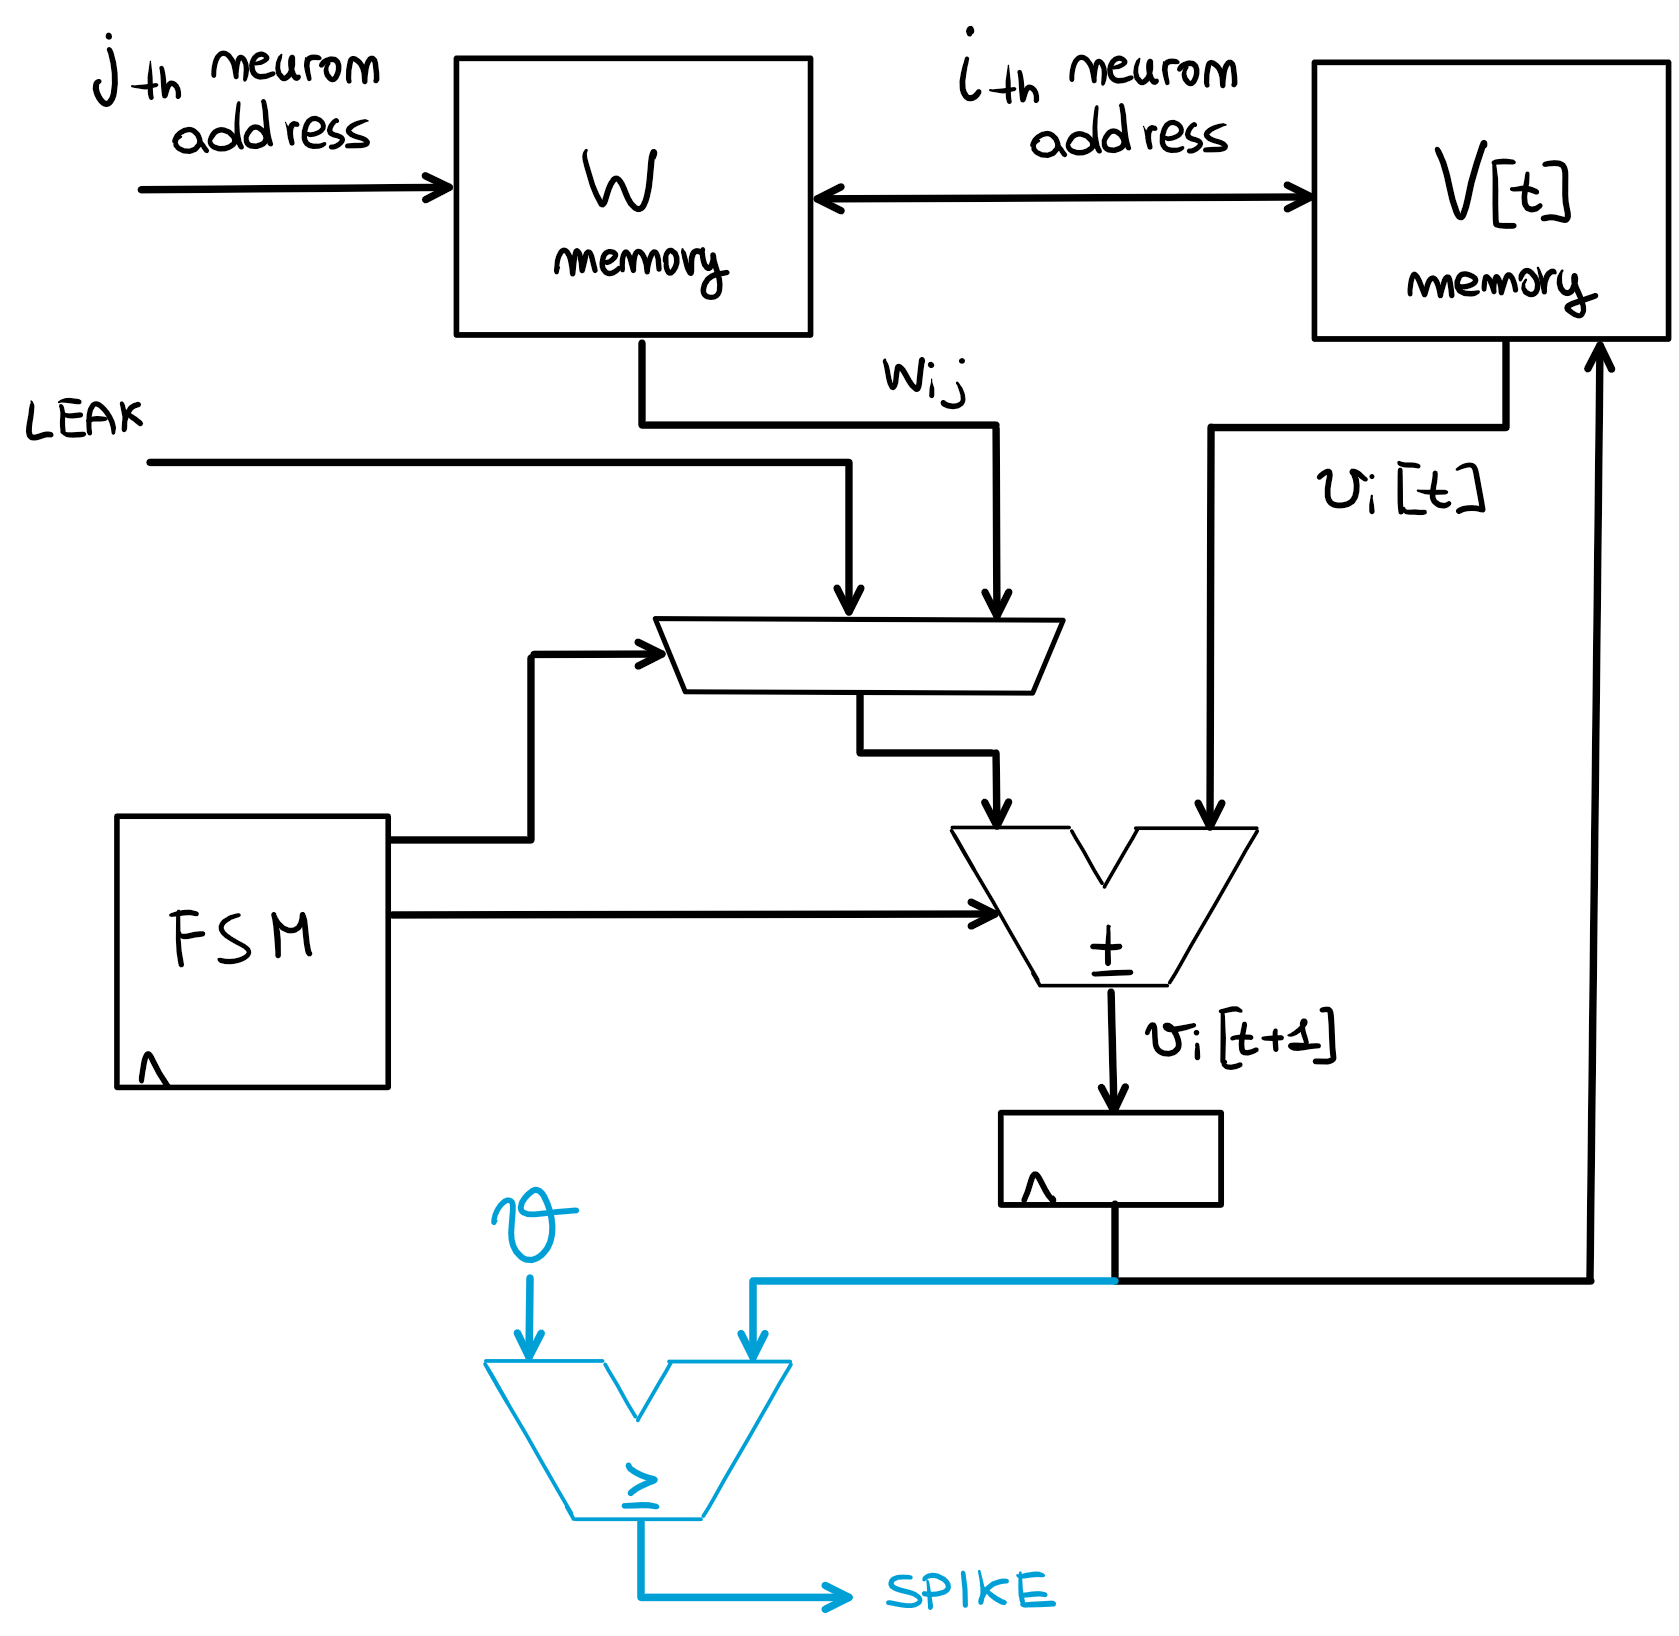 j_th neuron
address
W
memory
i_th neuron
address
V[t]
memory
w_ij
LEAK
v_i[t]
FSM
±
v_i[t+1]
ϑ
≥
SPIKE